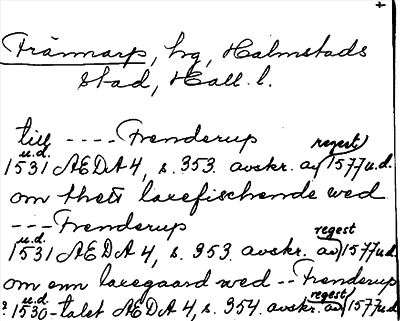 +
Trännarp, hg, Halmstads
stad, Hall. l.
till ---- Frenderup
u.d. regest
1531 AEDA 4, s. 353. avskr. av 1577 u.d.
om thett laxefischende wed
--- Frenderup
u.d. regest
1531 AEDA 4, s. 353. avskr. av 1577 u.d.
om enn laxegaard wed -- Frenderup
u.d. regest
? 1530-talet AEDA 4, s. 354. avskr. av 1577 u.d.